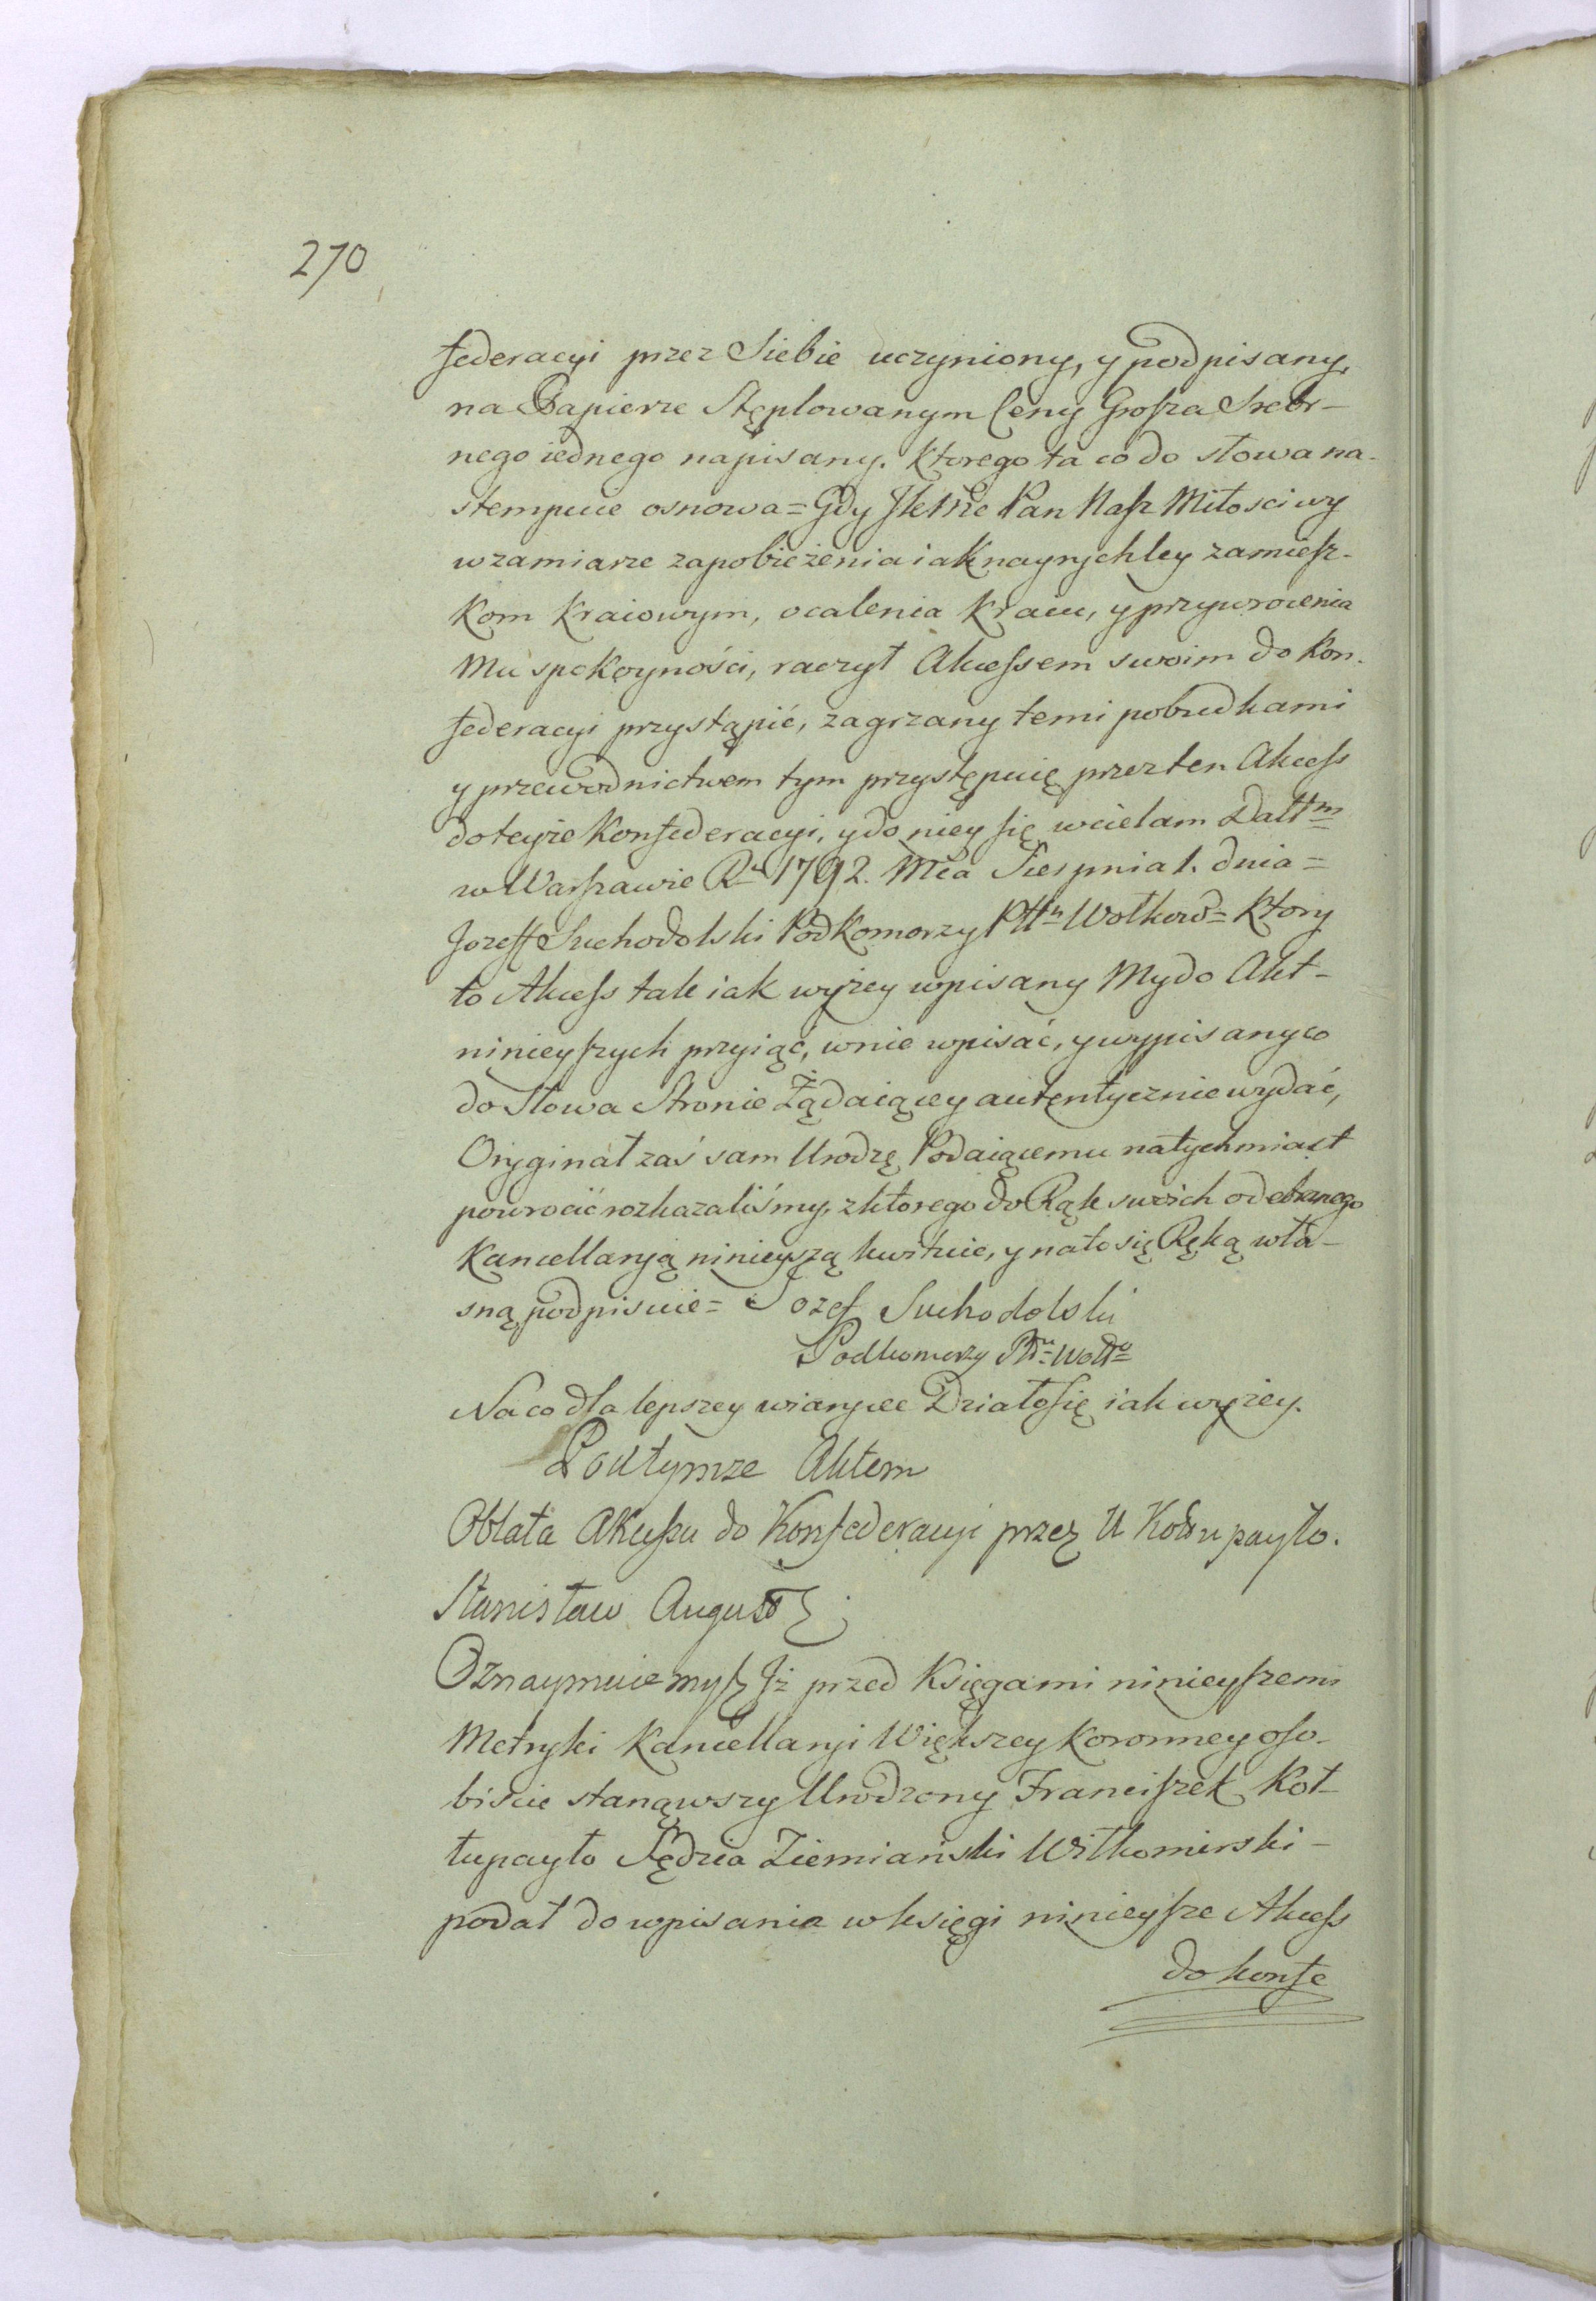 270
federacyi przez Siebie uczyniony, y podpisany,
na Papierze Stęplowanym Ceny Grosza Srebr-
nego iednego napisany. Ktorego ta co do słowa na-
stempuie osnowa = Gdy JKMść Pan Nasz Miłosciwy
w zamiarze zapobieżenia iak nayrychley zamiesz-
kom kraiowym, ocalenia Kraiu, y przywrocenia
Mu spokoyności, raczył Akcessem swoim do Kon-
federacyi przystąpić, zagrzany temi pobudkami
y przewodnictwem tym przystępuię przez ten Akcess
do teyże Konfederacyi, y do niey się wcielam Datt m
w Warszawie Ru 1792. Mca Sierpnia 1. dnia =
Jozeff Suchodolski Podkomorzy Pttu Wołkow = Ktory
to Akcess tak iak wyżey wpisany My do Akt-
ninieyszych przyiąć, w nie wpisać, y wypisany co
do Słowa Stronie Żądaiącey autentycznie wydać,
Oryginał zaś sam Urodzę Podaiącemu natychmiast
powrocić rozkazaliśmy, z ktorego do Rąk swoich odebranego
Kancellaryą ninieyszą kwituie, y na to się Ręką wła-
sną podpisuie = Jozef Suchodolski
Podkomorzy Ptu Wołko
Na co dla lepszey wiary etc Działo się iak wyżey.
Pod tymze Aktem
Oblata Akcessu do Konfederacyi przez U Kołłupayło.
Stanisław August
Oznaymuiemy Iż przed Księgami ninieyszemi
Metryki Kancellaryi Większey Koronney oso-
biscie stanąwszy Urodzony Franciszek Koł-
łupayło Sędzia Ziemiański Wiłkomirski -
podał do wpisania w księgi ninieysze Akcess
do konfe